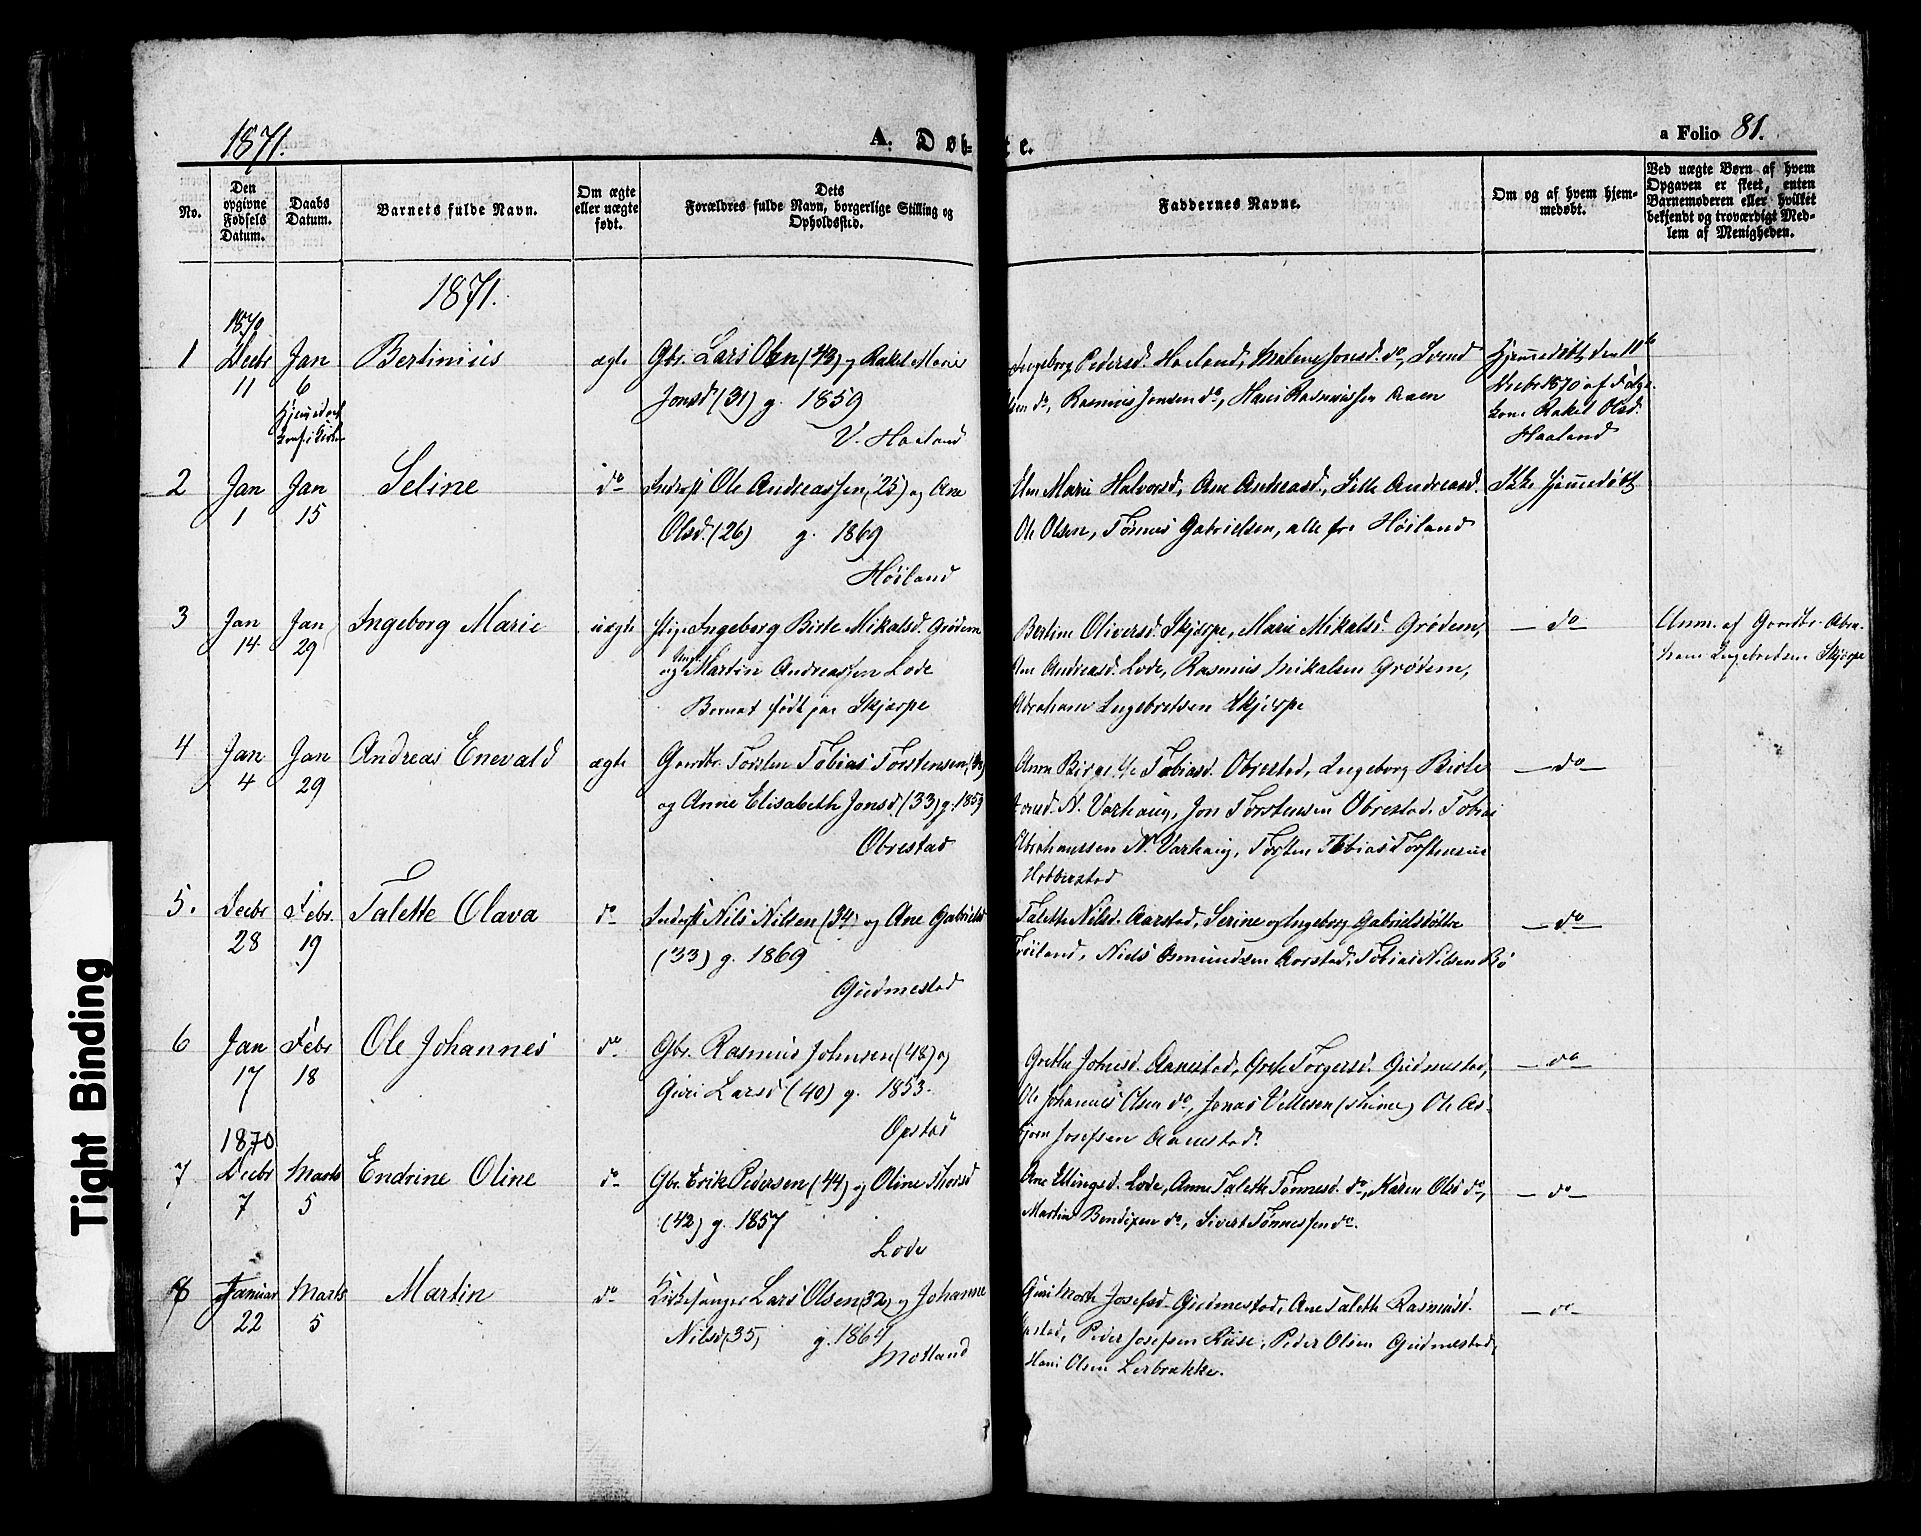 1871.
A. Døbte.
a Folio 81.
No.
Den opgivne Fødsels Datum.
Daabs Datum.
Barnets fulde Navn.
Om ægte eller uægte født.
Dets Forældres fulde Navn, borgerlige Stilling og Opholdssted.
Faddernes Navne.
Om og af hvem hjemmedøbt.
Ved uægte Børn af hvem Opgaven er skeet, enten Barnemoderen eller hvilket bekjendt og troværdigt Medlem af Menigheden.
1871.
1
1870 Decbr 11
Jan 6
Bertinius
ægte
Gbr. Lars Olsen (43) og Rakel Marie
Jonsd (31) g. 1859
V. Haaland
Ingeborg Pedersd. Haaland, Malene Jonsd. do, Svend
do, Rasmus Jonsen do, Hans Rasmussen Aaen
Hjemmedøbt den 11te
Decbr 1870 af
kone Rakel Olsd.
Haaland
2
Jan 1
Jan 15
Seline
do
Inderst Ole Andreassen (25) og Ane
Olsd. (26) g. 1869
Høiland
Marie Halvorsd, Ane Andreasd., Andreasd.
Ole Olsen, Tønnes Gabrielsen, alle fra Høiland
Ikke hjemmedøbt
3
Jan 14
Jan 29
Ingeborg Marie
uægte
Pige Ingeborg Birte Mikalsd. Grødem
og Ungk. Martin Andreassen Lode
Barnet født paa Skjærpe
Bertine Oliversd. Skjærpe, Marie Mikalsd. Grødem,
Ane Andreasd. Lode, Rasmus Mikalsen Grødem,
Abraham Ingebretsen Skjærpe
— do —
Anm. af Gaardbr. Abra-
ham Ingebretsen Skjærpe
4
Jan 4
Jan 29
Andreas Enevald
ægte
Gaardbr. Torsten Tobias Torstensen
og Anne Elisabeth Jonsd. (33) g. 1859
Obrestad
Anna Birgitte Tobiasd. Obrestad, Ingeborg Birte
N. Varhaug, Jon Torstensen Obrestad, Tobias
Abrahamsen N. Varhaug, Torsten Tobias Torstensen
Hobberstad
— do —
5.
Decbr 28
Febr. 19
Talette Olava
do
Inderst Nils Nilsen (34) og Ane Gabrielsd
(33) g. 1869
Gudmestad
Talette Nilsd. Aarstad, Serine og Ingeborg Gabrielsdøttre
Høiland, Niels Asmundsen Aarstad, Tobias Nilsen Bø
— do —
6
Jan 17
Febr 18
Ole Johannes
do
Gbr. Rasmus Johnsen (48) og
Guri Larsd (40) g. 1853.
Opstad
Grethe Johnsd. Aanestad, Grethe Torgersd. Gudmestad,
Ole Johannes Olsen do, Jonas Villesen Ole As-
bjørn Josefsen Aanestad.
— do —
7
1870 Decbr 7
Marts 5
Endrine Oline
do
Gbr. Erik Pedersen (44) og Oline Thorsd
(42) g. 1857
Lode
Ane Ellingsd. Lode, Anne Talette Tønnesd. do, Karen Olsd do,
Martin Bendixen do, Sivert Tønnessen do.
— do —
8
Januar 22
Marts 5
Martin
do
Kirkesanger Lars Olsen (32) og Johanne
Nilsd (35) g. 1864
Motland
Guri Marthe Josefsd. Gudmestad, Ane Talette Rasmusd.
Peder Josefsen Riise, Peder Olsen Gudmestad,
Hans Olsen Lerbrække.
— do —
Tight Binding